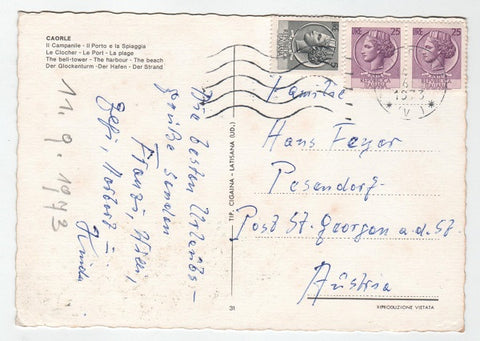 CAORLE
Il Campanile - Il Porto e la Spiaggia
Le Clocher - Le Port - La plage
The bell-tower - The harbour - The beach
Der Glockenturm - Der Hafen - Der Strand
11. 9. 1973
Die besten Urlaubs-
grüße senden
Franzi, Willi,
Norbert u.
TIP. CIGAINA - LATISANA (UD.)
31
LIRE 25
25
1973
Familie
Hans Feyer
Pesendorf
Post St. Georgen a. d. St.
Austria
RIPRODUZIONE VIETATA